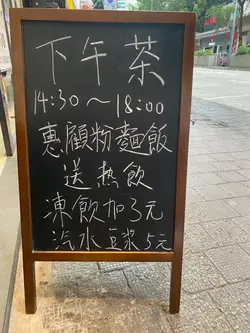 下午茶
14:30～18:00
惠顧粉麵飯
送熱飲
凍飲加3元
汽水豆浆5元